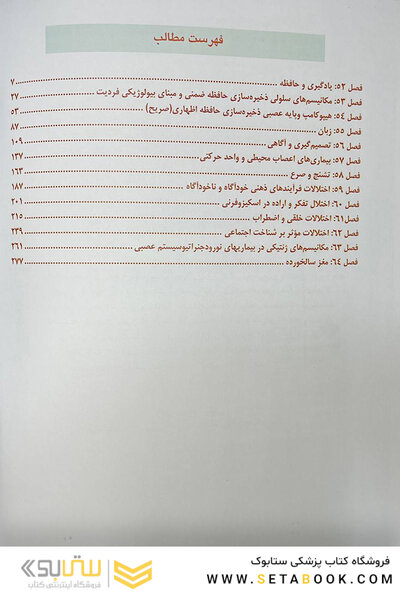 فهرست مطالب
فصل ۵۲: یادگیری و حافظه ........ ۷
فصل ۵۳: مکانیسم‌های سلولی ذخیره‌سازی حافظه ضمنی و مبنای بیولوژیکی فردیت ........ ۲۷
فصل ۵۴: هیپوکامپ وپایه عصبی ذخیره‌سازی حافظه اظهاری(صریح) ........ ۵۳
فصل ۵۵: زبان ........ ۸۷
فصل ۵۶: تصمیم‌گیری و آگاهی ........ ۱۰۹
فصل ۵۷: بیماری‌های اعصاب محیطی و واحد حرکتی ........ ۱۳۷
فصل ۵۸: تشنج و صرع ........ ۱۶۳
فصل ۵۹: اختلالات فرآیندهای ذهنی خودآگاه و ناخودآگاه ........ ۱۸۷
فصل ۶۰: اختلال تفکر و اراده در اسکیزوفرنی ........ ۲۰۱
فصل۶۱: اختلالات خلقی و اضطراب ........ ۲۱۵
فصل ۶۲: اختلالات مؤثر بر شناخت اجتماعی ........ ۲۳۹
فصل ۶۳: مکانیسم‌های ژنتیکی در بیماریهای نورودجنراتیوسیستم عصبی ........ ۲۶۱
فصل ۶۴: مغز سالخورده ........ ۲۷۷
فروشگاه کتاب پزشکی ستابوک
WWW.SETABOOK.COM
ستابوک
فروشگاه اینترنتی کتاب